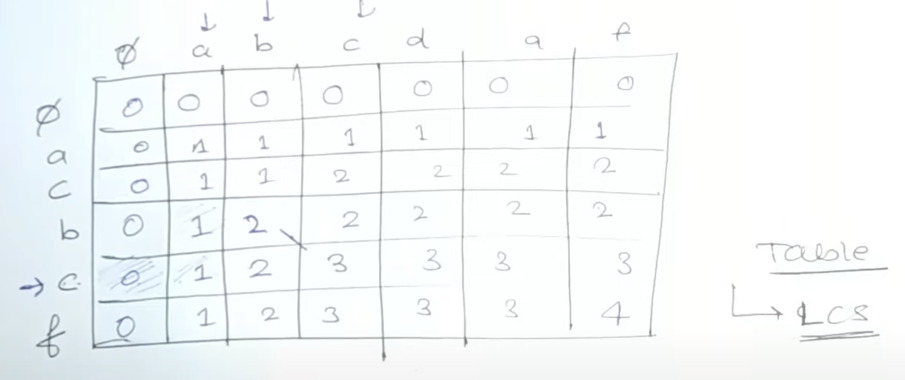 ∅ a b c d a f
∅ 0 0 0 0 0 0 0
a 0 1 1 1 1 1 1
c 0 1 1 2 2 2 2
b 0 1 2 2 2 2 2
→ c 0 1 2 3 3 3 3
f 0 1 2 3 3 3 4
Table
↳ LCS